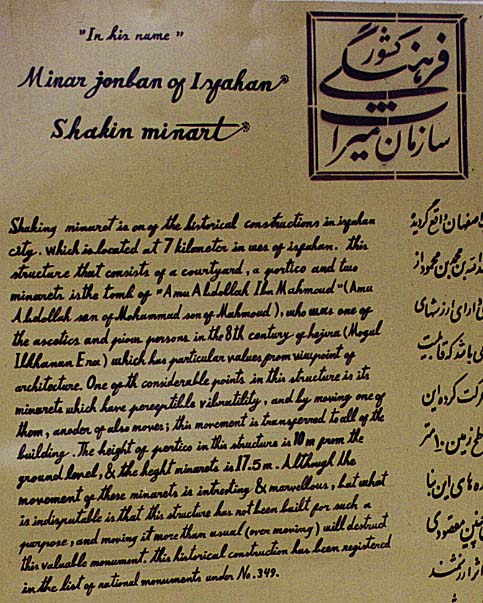 "In his name"
Minar jonban of Isfahan
Shakin minart
سازمان میراث
فرهنگی
کشور
Shaking minaret is on of the historical constructions in isfahan
city. which is located at 7 kilometer in wes of ispahan. this
structure that consists of a courtyard, a portico and two
minarets is the tomb of "Amu Abdollah Ibn Mahmoud" (Amu
Abdollah son of Mohammad son of Mahmoud), who was one of
the ascotics and pious persons in the 8th century of hejira (Mogul
Ilkhanan Era) which has particular values from viewpoint of
architecture. One of th considerable points in this structure is its
minarets which have pereptible vibratility, and by moving one of
them, anoder of also moves; this movement is transferred to all of the
building. The height of portico in this structure is 10 m from the
ground level, & the heght minarets is 17.5 m. Although the
movement of these minarets is intresting & marvellous, but what
is indisputable is that this structure has not been built for such a
purpose, and moving it more than usual (over moving) will destruct
this valuable monument. this historical construction has been registered
in the list of national monuments under No. 349.
اصفهان واقع گردیده
محمد بن محمود از
دارای ارزشهای
می باشد که قابلیت
حرکت کرده این
سطح زمین ۱۰ متر
های این بنا